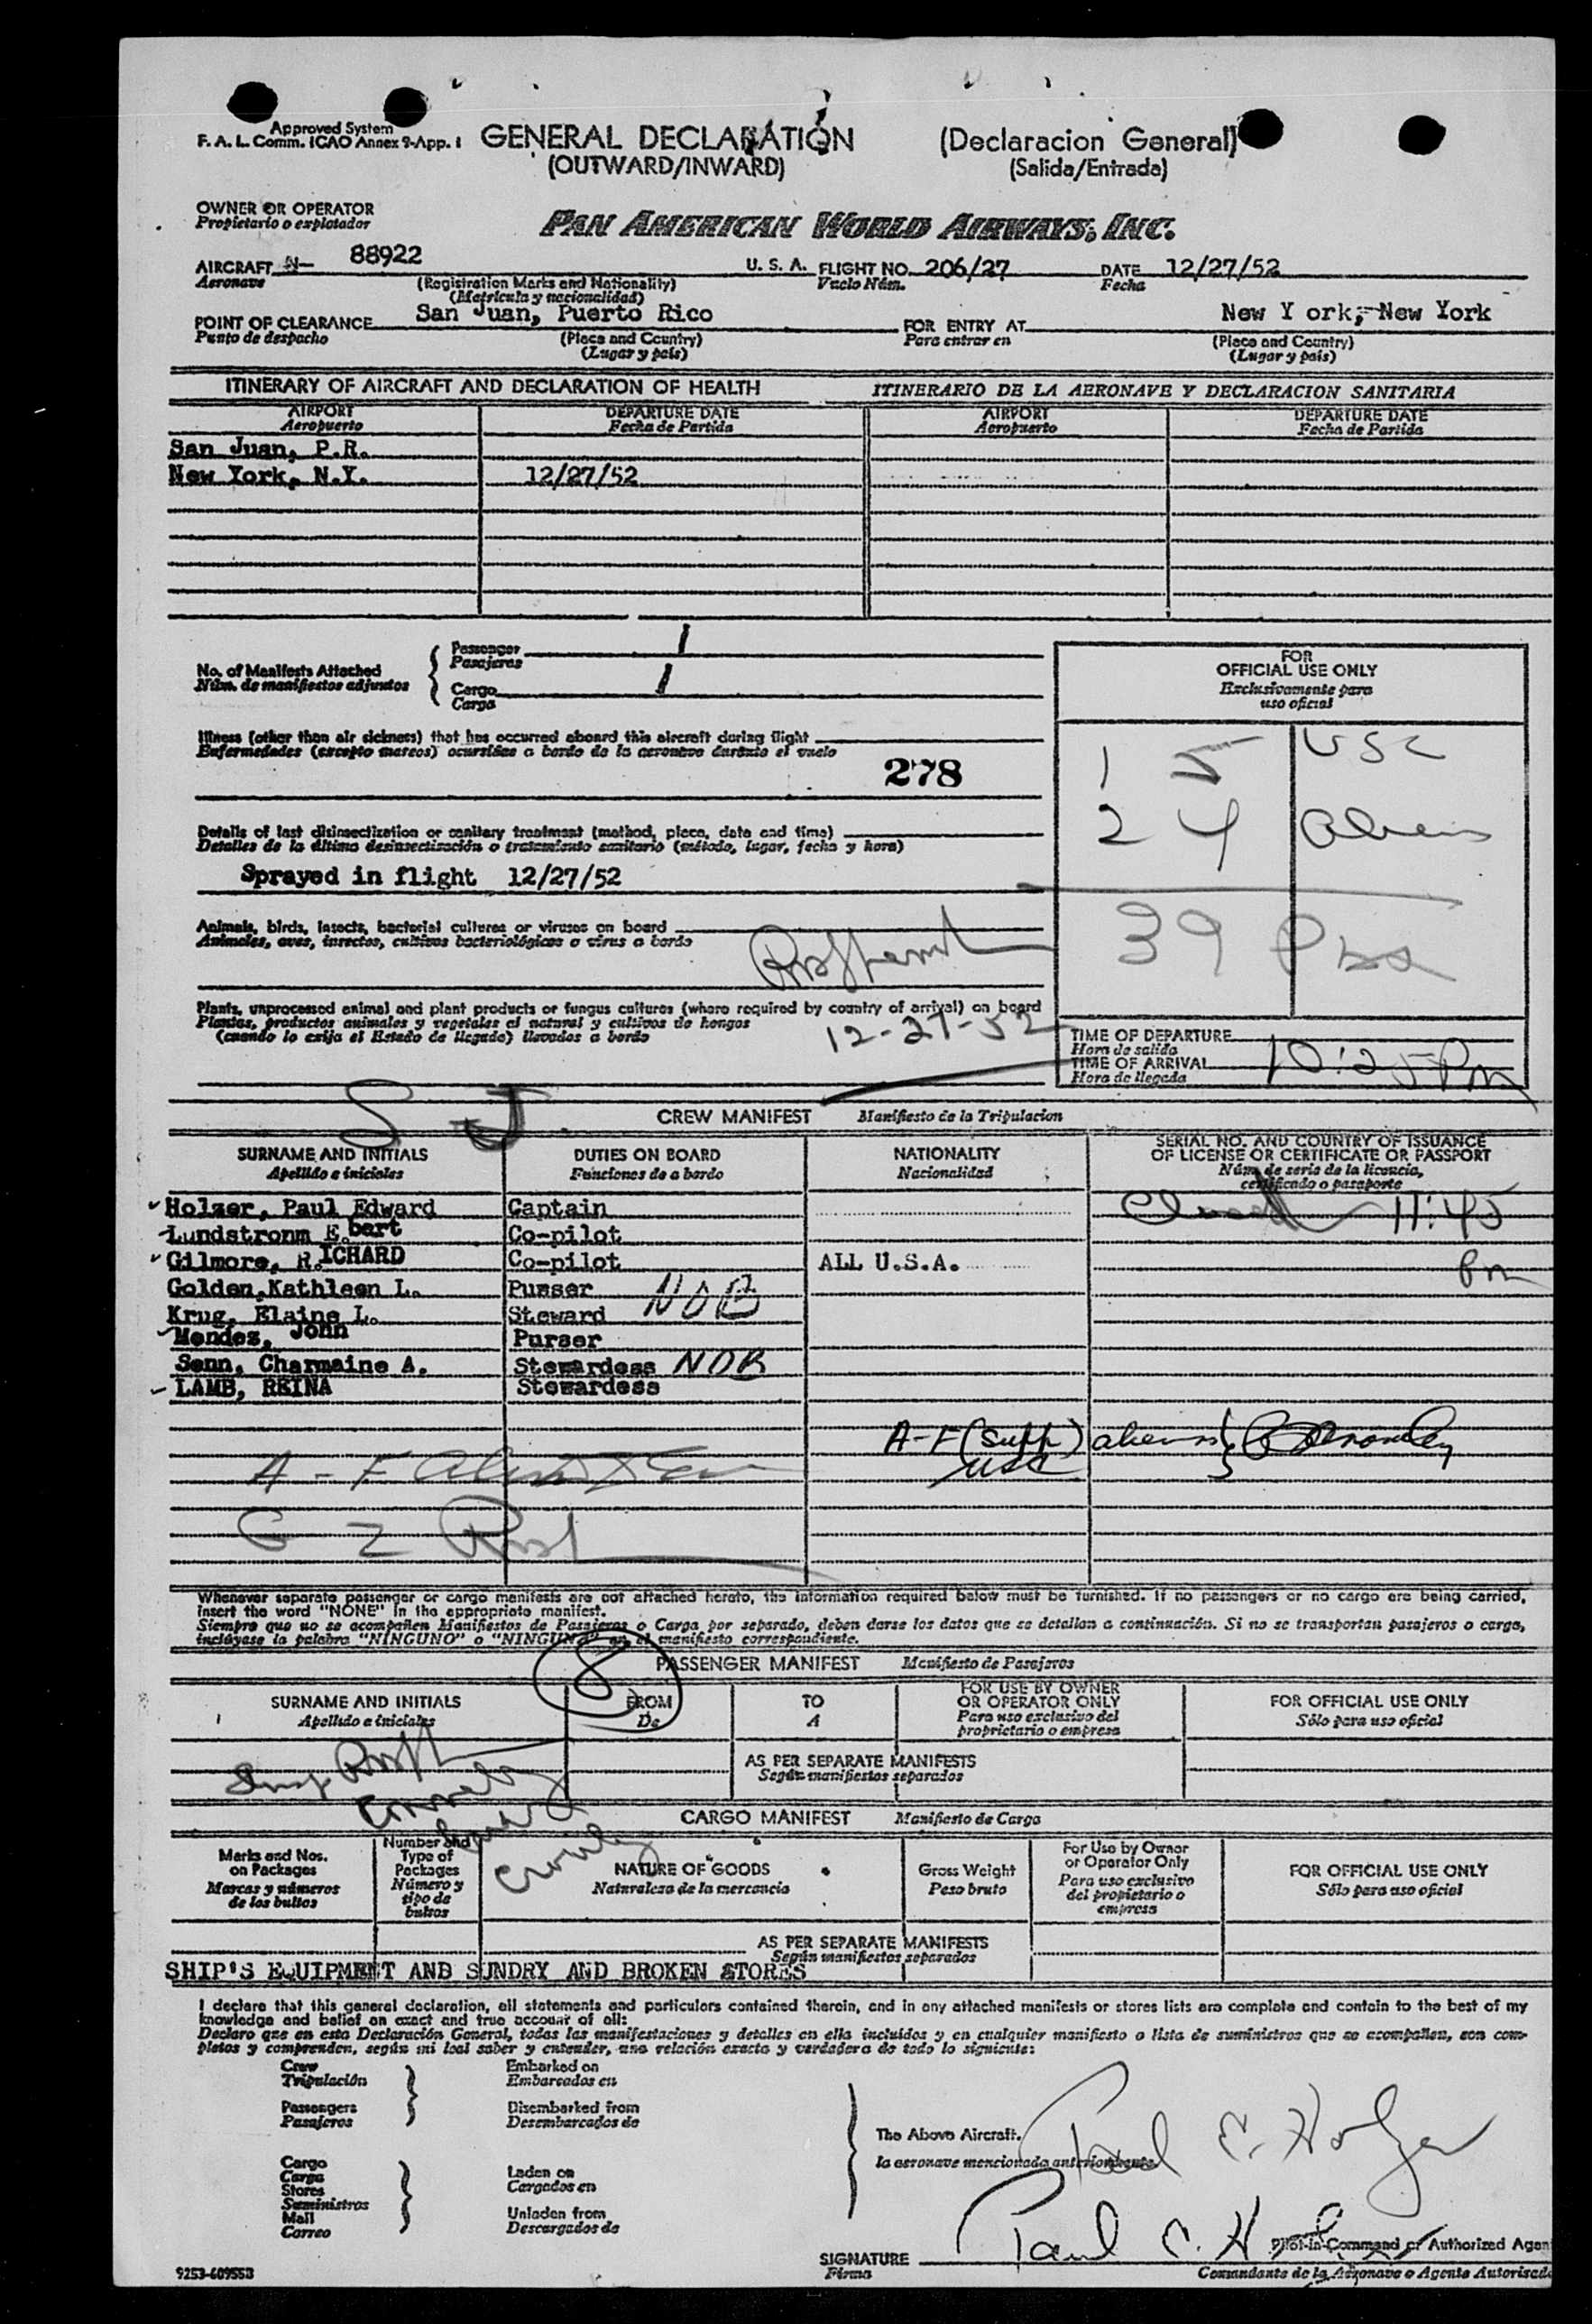 Approved System
F. A. L. Comm. ICAO Annex 9-App. 1
GENERAL DECLARATION (Declaracion General)
(OUTWARD/INWARD) (Salida/Entrada)
OWNER OR OPERATOR
Propietario o explotador
PAN AMERICAN WORLD AIRWAYS, INC.
AIRCRAFT N- 88922 U. S. A. FLIGHT NO. 206/27 DATE 12/27/52
Aeronave (Registration Marks and Nationality) Vuelo Núm. Fecha
(Matricula y nacionalidad)
POINT OF CLEARANCE San Juan, Puerto Rico FOR ENTRY AT New Y ork, New York
Punto de despacho (Place and Country) Para entrar en (Place and Country)
(Lugar y país) (Lugar y país)
ITINERARY OF AIRCRAFT AND DECLARATION OF HEALTH ITINERARIO DE LA AERONAVE Y DECLARACION SANITARIA
AIRPORT DEPARTURE DATE AIRPORT DEPARTURE DATE
Aeropuerto Fecha de Partida Aeropuerto Fecha de Partida
San Juan, P.R.
New York, N.Y. 12/27/52
No. of Manifests Attached
Núm. de manifiestos adjuntos
Passenger 1
Pasajeros
Cargo 1
Carga
FOR
OFFICIAL USE ONLY
Exclusivamente para
uso oficial
Illness (other than air sickness) that has occurred aboard this aircraft during flight
Enfermedades (excepto mareos) ocurridas a bordo de la aeronave durante el vuelo
278
1 5 USC
2 4 Aliens
39 Pax
Details of last disinsectization or sanitary treatment (method, place, date and time)
Detalles de la última desinsectización o tratamiento sanitario (método, lugar, fecha y hora)
Sprayed in flight 12/27/52
Animals, birds, insects, bacterial cultures or viruses on board
Animales, aves, insectos, cultivos bacteriológicos o virus a bordo
Plants, unprocessed animal and plant products or fungus cultures (where required by country of arrival) on board
Plantas, productos animales y vegetales al natural y cultivos de hongos
(cuando lo exija el Estado de llegada) llevados a bordo
12-27-52
TIME OF DEPARTURE
Hora de salida
TIME OF ARRIVAL 10:25 Pm
Hora de llegada
S J
CREW MANIFEST Manifiesto de la Tripulacion
SURNAME AND INITIALS DUTIES ON BOARD NATIONALITY SERIAL NO. AND COUNTRY OF ISSUANCE
OF LICENSE OR CERTIFICATE OR PASSPORT
Apellido e iniciales Funciones de a bordo Nacionalidad Núm. de serie de la licencia,
certificado o pasaporte
Holzer, Paul Edward Captain 11:45
Lundstronm E.bert Co-pilot
Gilmore, R.ICHARD Co-pilot ALL U.S.A. Pm
Golden, Kathleen L. Purser NOB
Krug, Elaine L. Steward
Mendez, John Purser
Senn, Charmaine A. Stewardess NOB
LAMB, REINA Stewardess
A-F (Supp) aliens
USC
A - F
G Z
Whenever separate passenger or cargo manifests are not attached hereto, the information required below must be furnished. If no passengers or no cargo are being carried,
insert the word "NONE" in the appropriate manifest.
Siempre que no se acompañen Manifiestos de Pasajeros o Carga por separado, deben darse los datos que se detallan a continuación. Si no se transportan pasajeros o carga,
inclúyase la palabra "NINGUNO" o "NINGUNA" en el manifiesto correspondiente.
8
PASSENGER MANIFEST Manifiesto de Pasajeros
SURNAME AND INITIALS FROM TO FOR USE BY OWNER
OR OPERATOR ONLY FOR OFFICIAL USE ONLY
Apellido e iniciales De A Para uso exclusivo del
propietario o empresa Sólo para uso oficial
AS PER SEPARATE MANIFESTS
Según manifiestos separados
CARGO MANIFEST Manifiesto de Carga
Marks and Nos.
on Packages
Marcas y números
de los bultos
Number and
Type of
Packages
Número y
tipo de
bultos
NATURE OF GOODS
Naturaleza de la mercancia
Gross Weight
Peso bruto
For Use by Owner
or Operator Only
Para uso exclusivo
del propietario o
empresa
FOR OFFICIAL USE ONLY
Sólo para uso oficial
AS PER SEPARATE MANIFESTS
Según manifiestos separados
SHIP'S EQUIPMENT AND SUNDRY AND BROKEN STORES
I declare that this general declaration, all statements and particulars contained therein, and in any attached manifests or stores lists are complete and contain to the best of my
knowledge and belief an exact and true account of all:
Declaro que en esta Declaración General, todas las manifestaciones y detalles en ella incluidos y en cualquier manifiesto o lista de suministros que se acompañen, son com-
pletos y comprenden, según mi leal saber y entender, una relación exacta y verdadera de todo lo siguiente:
Crew
Tripulación
Passengers
Pasajeros
Embarked on
Embarcados en
Disembarked from
Desembarcados de
Cargo
Carga
Stores
Suministros
Mail
Correo
Laden on
Cargados en
Unladen from
Descargados de
The Above Aircraft.
la aeronave mencionada anteriormente
Paul E. Holzer
Paul E. Holzer
Pilot-in-Command or Authorized Agen
SIGNATURE
Firma
Comandante de la Aeronave o Agente Autorizad
9253-609553